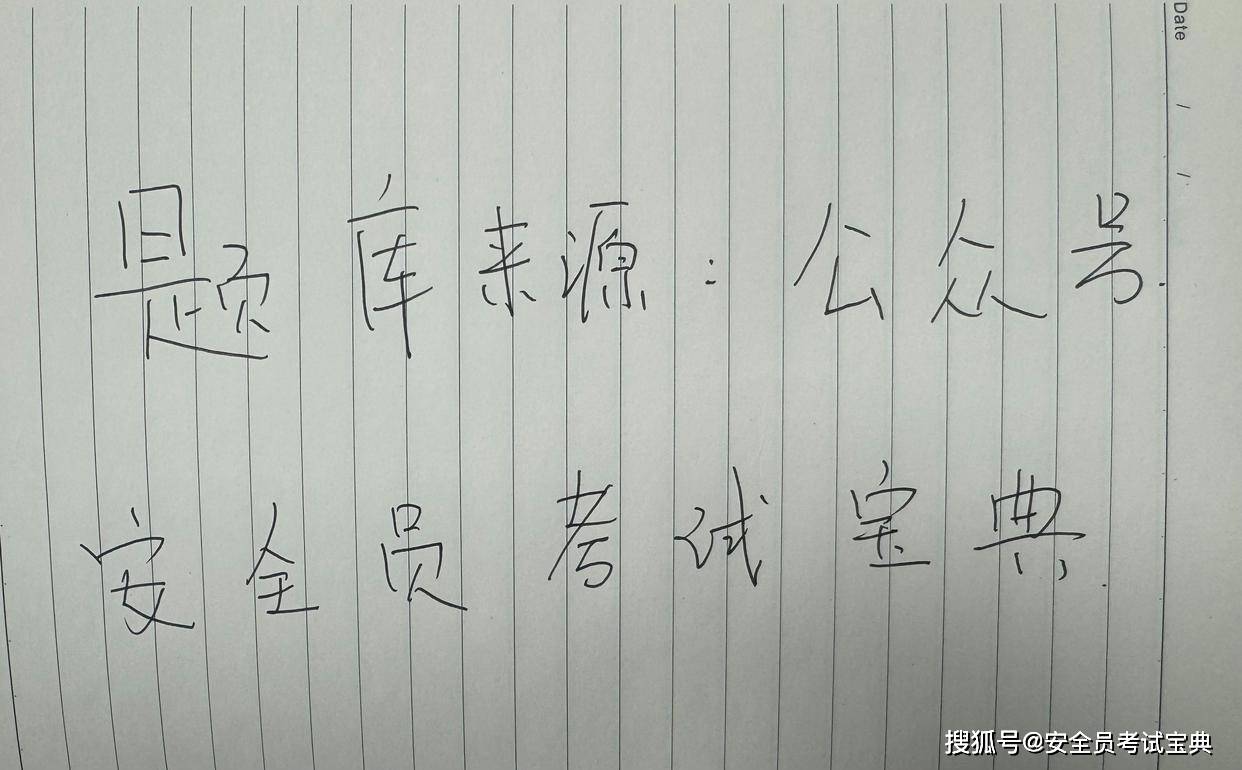 Date / /
题库来源：公众号
安全员考试宝典
搜狐号@安全员考试宝典